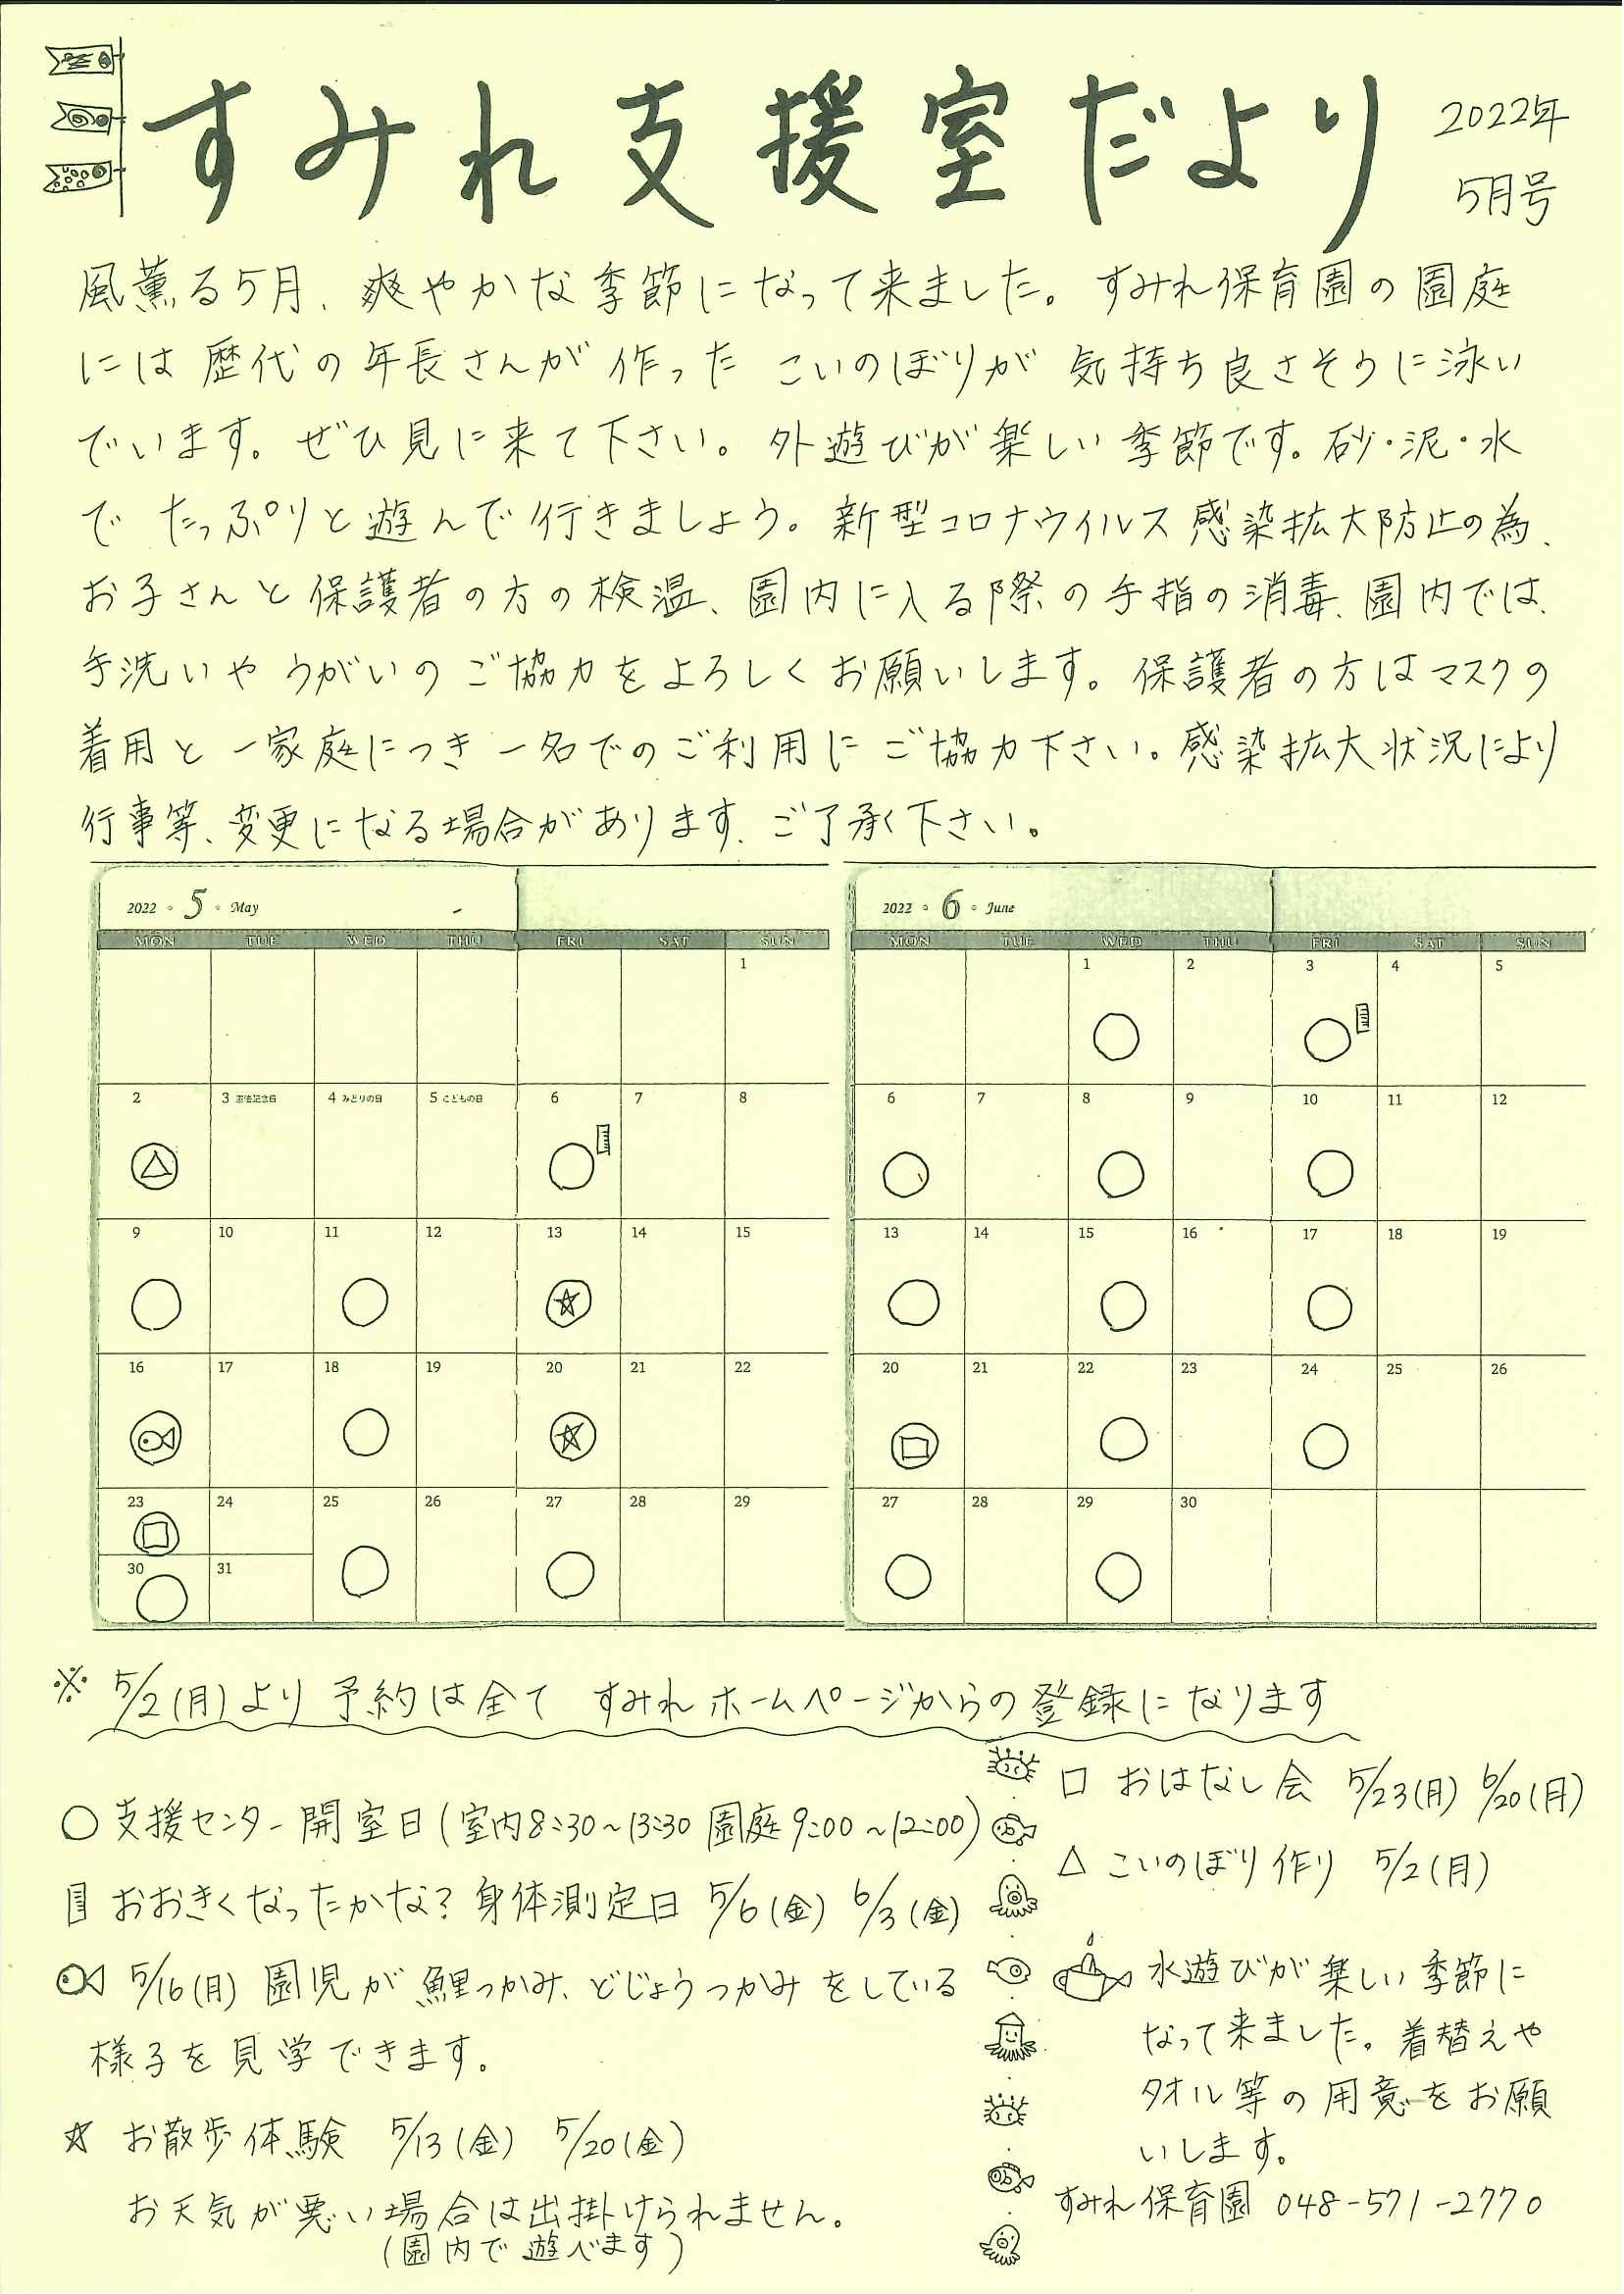 すみれ支援室だより
2022年
5月号
風薫る5月、爽やかな季節になって来ました。すみれ保育園の園庭
には歴代の年長さんが作った こいのぼりが 気持ち良さそうに泳い
でいます。ぜひ見に来て下さい。外遊びが楽しい季節です。砂・泥・水
で たっぷりと遊んで行きましょう。新型コロナウイルス感染拡大防止の為、
お子さんと保護者の方の検温、園内に入る際の手指の消毒、園内では、
手洗いやうがいのご協力をよろしくお願いします。保護者の方はマスクの
着用と一家庭につき一名でのご利用にご協力下さい。感染拡大状況により
行事等、変更になる場合があります、ご了承く下さい。
2022 ◦ 5 ◦ May
MON TUE WED THU FRI SAT SUN
1
2 3 憲法記念日 4 みどりの日 5 こどもの日 6 7 8
9 10 11 12 13 14 15
16 17 18 19 20 21 22
23 24 25 26 27 28 29
30 31
2022 ◦ 6 ◦ June
MON TUE WED THU FRI SAT SUN
1 2 3 4 5
6 7 8 9 10 11 12
13 14 15 16 17 18 19
20 21 22 23 24 25 26
27 28 29 30
※ 5/2(月)より予約は全て すみれホームページからの登録になります
○ 支援センター開室日(室内8:30~13:30 園庭9:00~12:00)
おおきくなったかな? 身体測定日 5/6(金) 6/3(金)
5/16(月) 園児が鯉つかみ、どじょうつかみをしている
様子を見学できます。
☆ お散歩体験 5/13(金) 5/20(金)
お天気が悪い場合は出掛けられません。
(園内で遊べます)
□ おはなし会 5/23(月) 6/20(月)
△ こいのぼり作り 5/2(月)
水遊びが楽しい季節に
なって来ました。着替えや
タオル等の用意をお願
いします。
すみれ保育園 048-571-2770